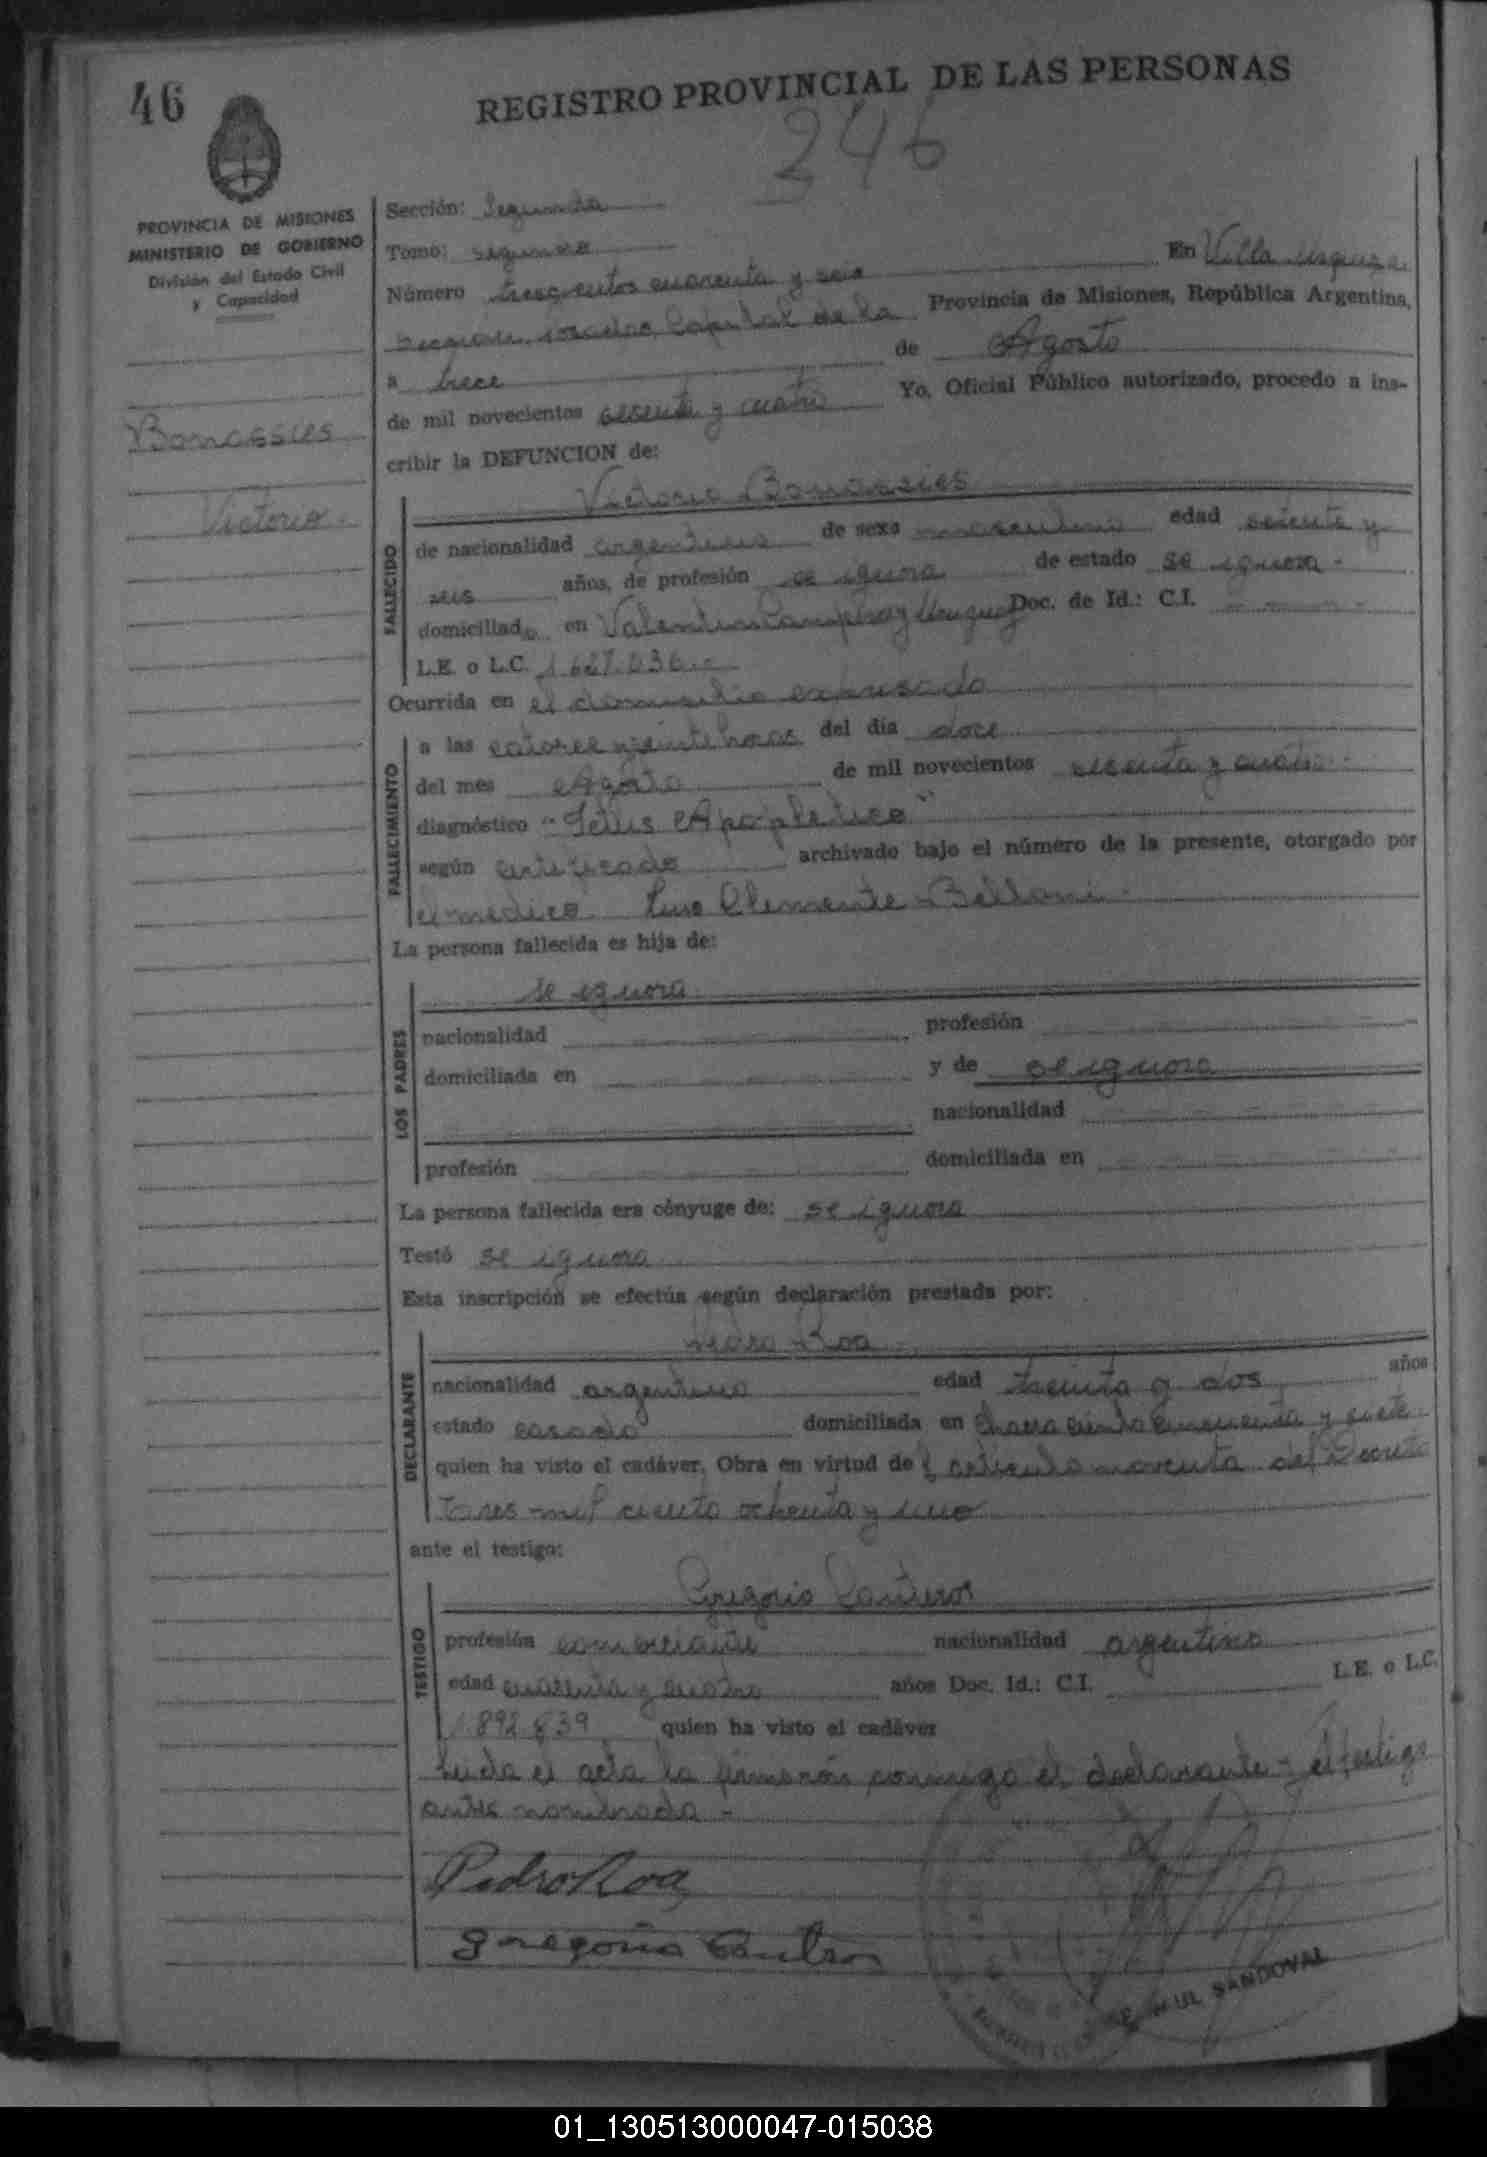 46
REGISTRO PROVINCIAL DE LAS PERSONAS
346
PROVINCIA DE MISIONES
MINISTERIO DE GOBIERNO
División del Estado Civil
y Capacidad
Bonassies
Victorio.
Sección: Segunda
Tomo: segundo
Número trescientos cuarenta y seis En Villa Urquiza
Capital de la Provincia de Misiones, República Argentina,
a trece de Agosto
de mil novecientos sesenta y cuatro Yo, Oficial Público autorizado, procedo a ins-
cribir la DEFUNCION de:
FALLECIDO
Victorio Bonassies
de nacionalidad argentino de sexo masculino edad setenta y
seis años, de profesión se ignora de estado se ignora -
domiciliado en Valentin Doc. de Id.: C.I. - - -
L.E. o L.C. 1.627.036.-
Ocurrida en el domicilio expresado
FALLECIMIENTO
a las catorce y veinte horas del día doce
del mes Agosto de mil novecientos sesenta y cuatro -
diagnóstico " Apopletico"
según certificado archivado bajo el número de la presente, otorgado por
el medico Clemente Belloni -
La persona fallecida es hija de:
LOS PADRES
se ignora
nacionalidad profesión
domiciliada en y de se ignora
nacionalidad
profesión domiciliada en
La persona fallecida era cónyuge de: se ignora
Testó se ignora
Esta inscripción se efectúa según declaración prestada por:
DECLARANTE
Pedro Roa
nacionalidad argentino edad treinta y dos años
estado casado domiciliada en chacra ciento cincuenta y siete
quien ha visto el cadáver, Obra en virtud del articulo noventa del Decreto
tres mil ciento ochenta y uno
ante el testigo:
TESTIGO
Gregorio Canteros
profesión comerciante nacionalidad argentino
edad cuarenta y cuatro años Doc. Id.: C.I. L.E. o L.C.
1.892.839 quien ha visto el cadáver
Leida el acta la firmaron conmigo el declarante y el testigo
antes nombrado -
Pedro Roa
Gregorio Canteros
SANDOVAL
01_130513000047-015038